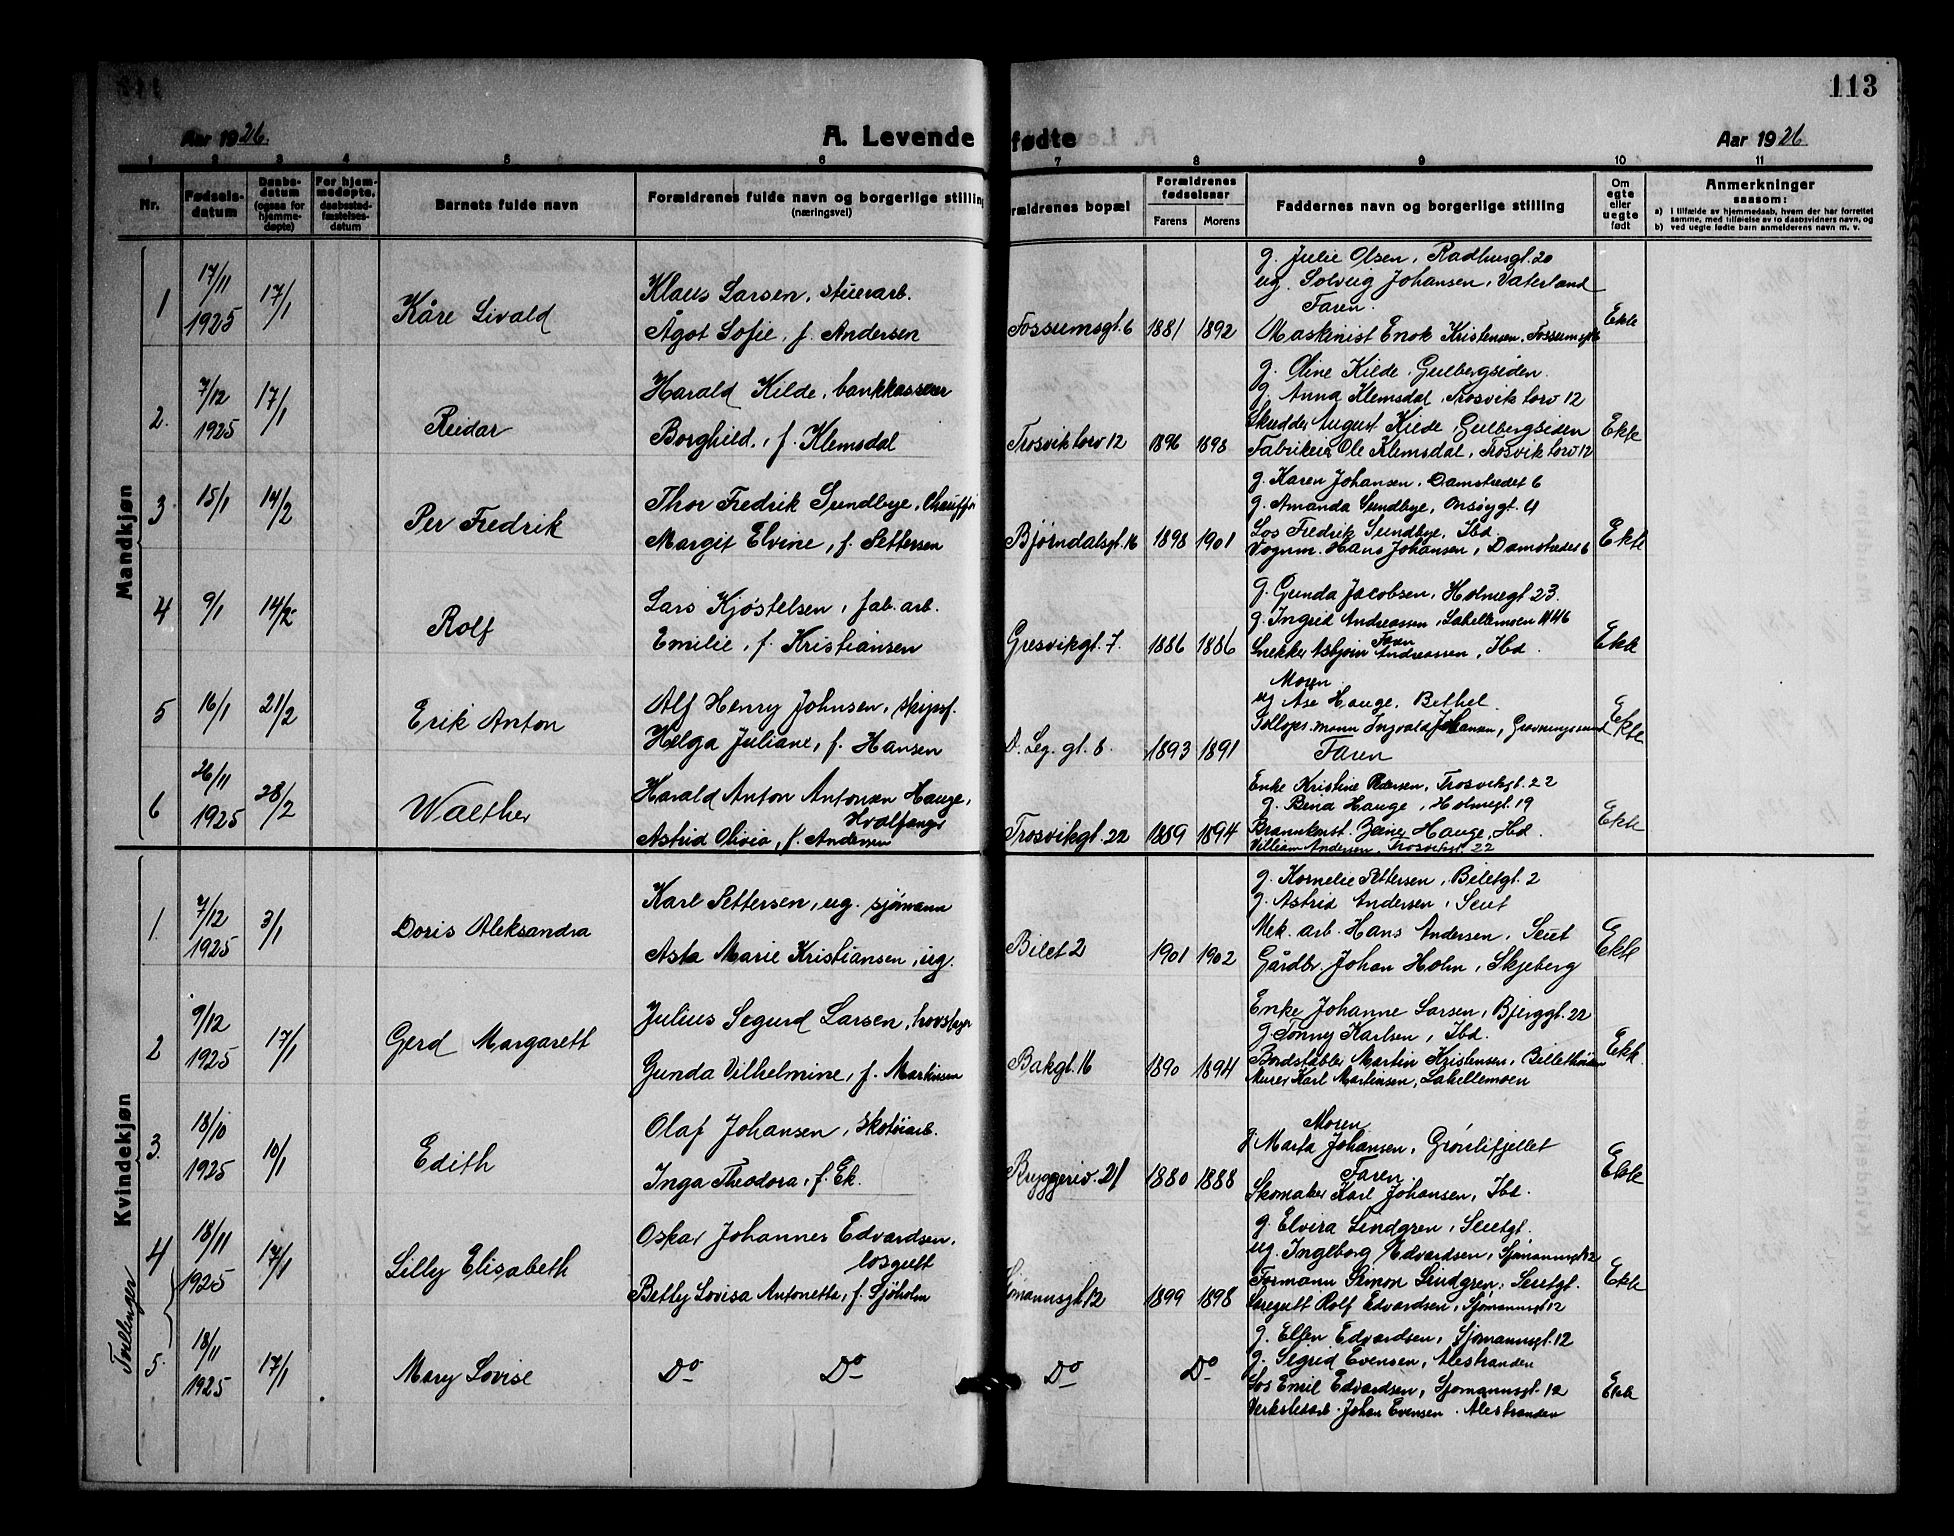 113
Aar 1926.
A. Levende fødte
Aar 1926
1 2 3 4 5 6 7 8 9 10 11
Nr.
Fødselsdatum
Daabsdatum (ogsaa for hjemmedøpte)
For hjemmedøpte, daabsstadfæstelsesdatum
Barnets fulde navn
Forældrenes fulde navn og borgerlige stilling (næringsvei)
Forældrenes bopæl
Forældrenes fødselsaar
Farens Morens
Faddernes navn og borgerlige stilling
Om egte eller uegte født
Anmerkninger saasom:
a) I tilfælde av hjemmedaab, hvem der har forrettet samme, med tilføielse av to daabsvidners navn, og
b) ved uegte fødte barn anmelderens navn m. v.
Mandkjøn
1 17/11 1925 17/1 Kåre Sivald
Klaus Larsen, stuerarb.
Ågot Sofie, f. Andersen
Fossumsgt. 6 1881 1892
g. Julie Olsen, Radhusgt. 20
ug. Solveig Johansen, Vaterland
Faren.
Maskinist Enok Kristensen, Fossumsgt 6
Ekte
2. 7/12 1925 17/1 Reidar
Harald Kilde, bankkasserer
Borghild, f. Klemsdal
Trosvik torv 12 1896 1898
g. Oline Kilde, Gulbergsiden.
g. Anna Klemsdal, Trosvik torv 12
Skredder August Kilde, Gulbergsiden
Fabrikeier Ole Klemsdal, Trosvik torv 12
Ekte
3 15/1 14/2 Per Fredrik
Thor Fredrik Sundbye, Chauffør
Margit Elvine, f. Pettersen
Bjørndalsgt. 16 1898 1901
g. Karen Johansen, Damstredet 6
g. Amanda Sundbye, Onsøygt. 4
Los Fredrik Sundbye, Ibd.
Vognm. Hans Johansen, Damstredet 6
Ekte
4 9/1 14/2 Rolf
Lars Kjøstelsen, fab. arb.
Emilie, f. Kristiansen
Gresvikgt. 7. 1886 1886
g. Gunda Jacobsen, Holmegt 23.
g. Ingrid Andreassen, Lahellemoen 1446
Faren
Snekker Asbjørn Andreassen, Ibd.
Ekte
5 16/1 21/2 Erik Anton
Alf Henry Johnsen, skipsf.
Helga Juliane, f. Hansen
O. Leg. gt. 8. 1893 1891
Moren.
ug Åse Hauge, Bethel.
Tollops. mann Ingvald Johansen, Grønningssund
Faren
Ekte
6 26/11 1925 28/2 Walther
Harald Anton Antonsen Hauge,
Hvalfanger
Astrid Olivia, f. Andersen
Trosvikgt. 22 1889 1894
Enke Kristine Pedersen, Trosvikgt. 22
g. Bina Hauge, Holmegt. 19
Brannkonst. Einer Hauge, Ibd.
Villiam Andersen, Trosvikgt. 22
Ekte
Kvindekjøn
1. 7/12 1925 3/1 Doris Aleksandra
Karl Pettersen, ug. sjømann
Asta Marie Kristiansen, ug.
Bilet 2 1901 1902
g. Kornelie Pettersen, Biletgt. 2
g. Astrid Andersen, Seut
Mek. arb. Hans Andersen, Seut
Gårdbr. Johan Holm, Skjeberg
Ekte
2 9/12 1925 17/1 Gerd Margarett
Julius Segurd Larsen,
Gunda Vilhelmine, f. Martinsen
Bakgt. 16 1890 1894
Enke Johanne Larsen, Bjerggt. 22
g. Tonny Karlsen, Ibd.
Bordstabler Martin Kristensen,
Murer Karl Martinsen, Lahellemoen
Ekte
3. 18/10 1925 10/1 Edith
Olaf Johansen, Skotøiarb.
Inga Theodora, f. Ek.
Bryggeriv. 21 1880 1888
Moren
g Marta Johansen, Grønlifjellet
Faren.
Skomaker Karl Johansen, Ibd.
Ekte
Tvillinger
4 18/11 1925 17/1 Lilly Elisabeth
Oskar Johannes Edvardsen,
losgutt
Betty Lovisa Antonette, f. Sjøholm
Sjømannsgt. 12 1899 1898
g. Elvira Lindgren, Seutgt.
ug. Ingeborg Edvardsen, Sjømannsgt 12
Formann Simon Lindgren, Seutgt.
Losgutt Rolf Edvardsen, Sjømannsgt 12
Ekte
5. 18/11 1925 17/1 Mary Lovise
Do Do
Do Do
g. Ellen Edvardsen, Sjømannsgt. 12
g. Sigrid Evensen, Alestranden
Los Emil Edvardsen, Sjømannsgt. 12
Verkstedarb. Johan Evensen, Alestranden
Ekte